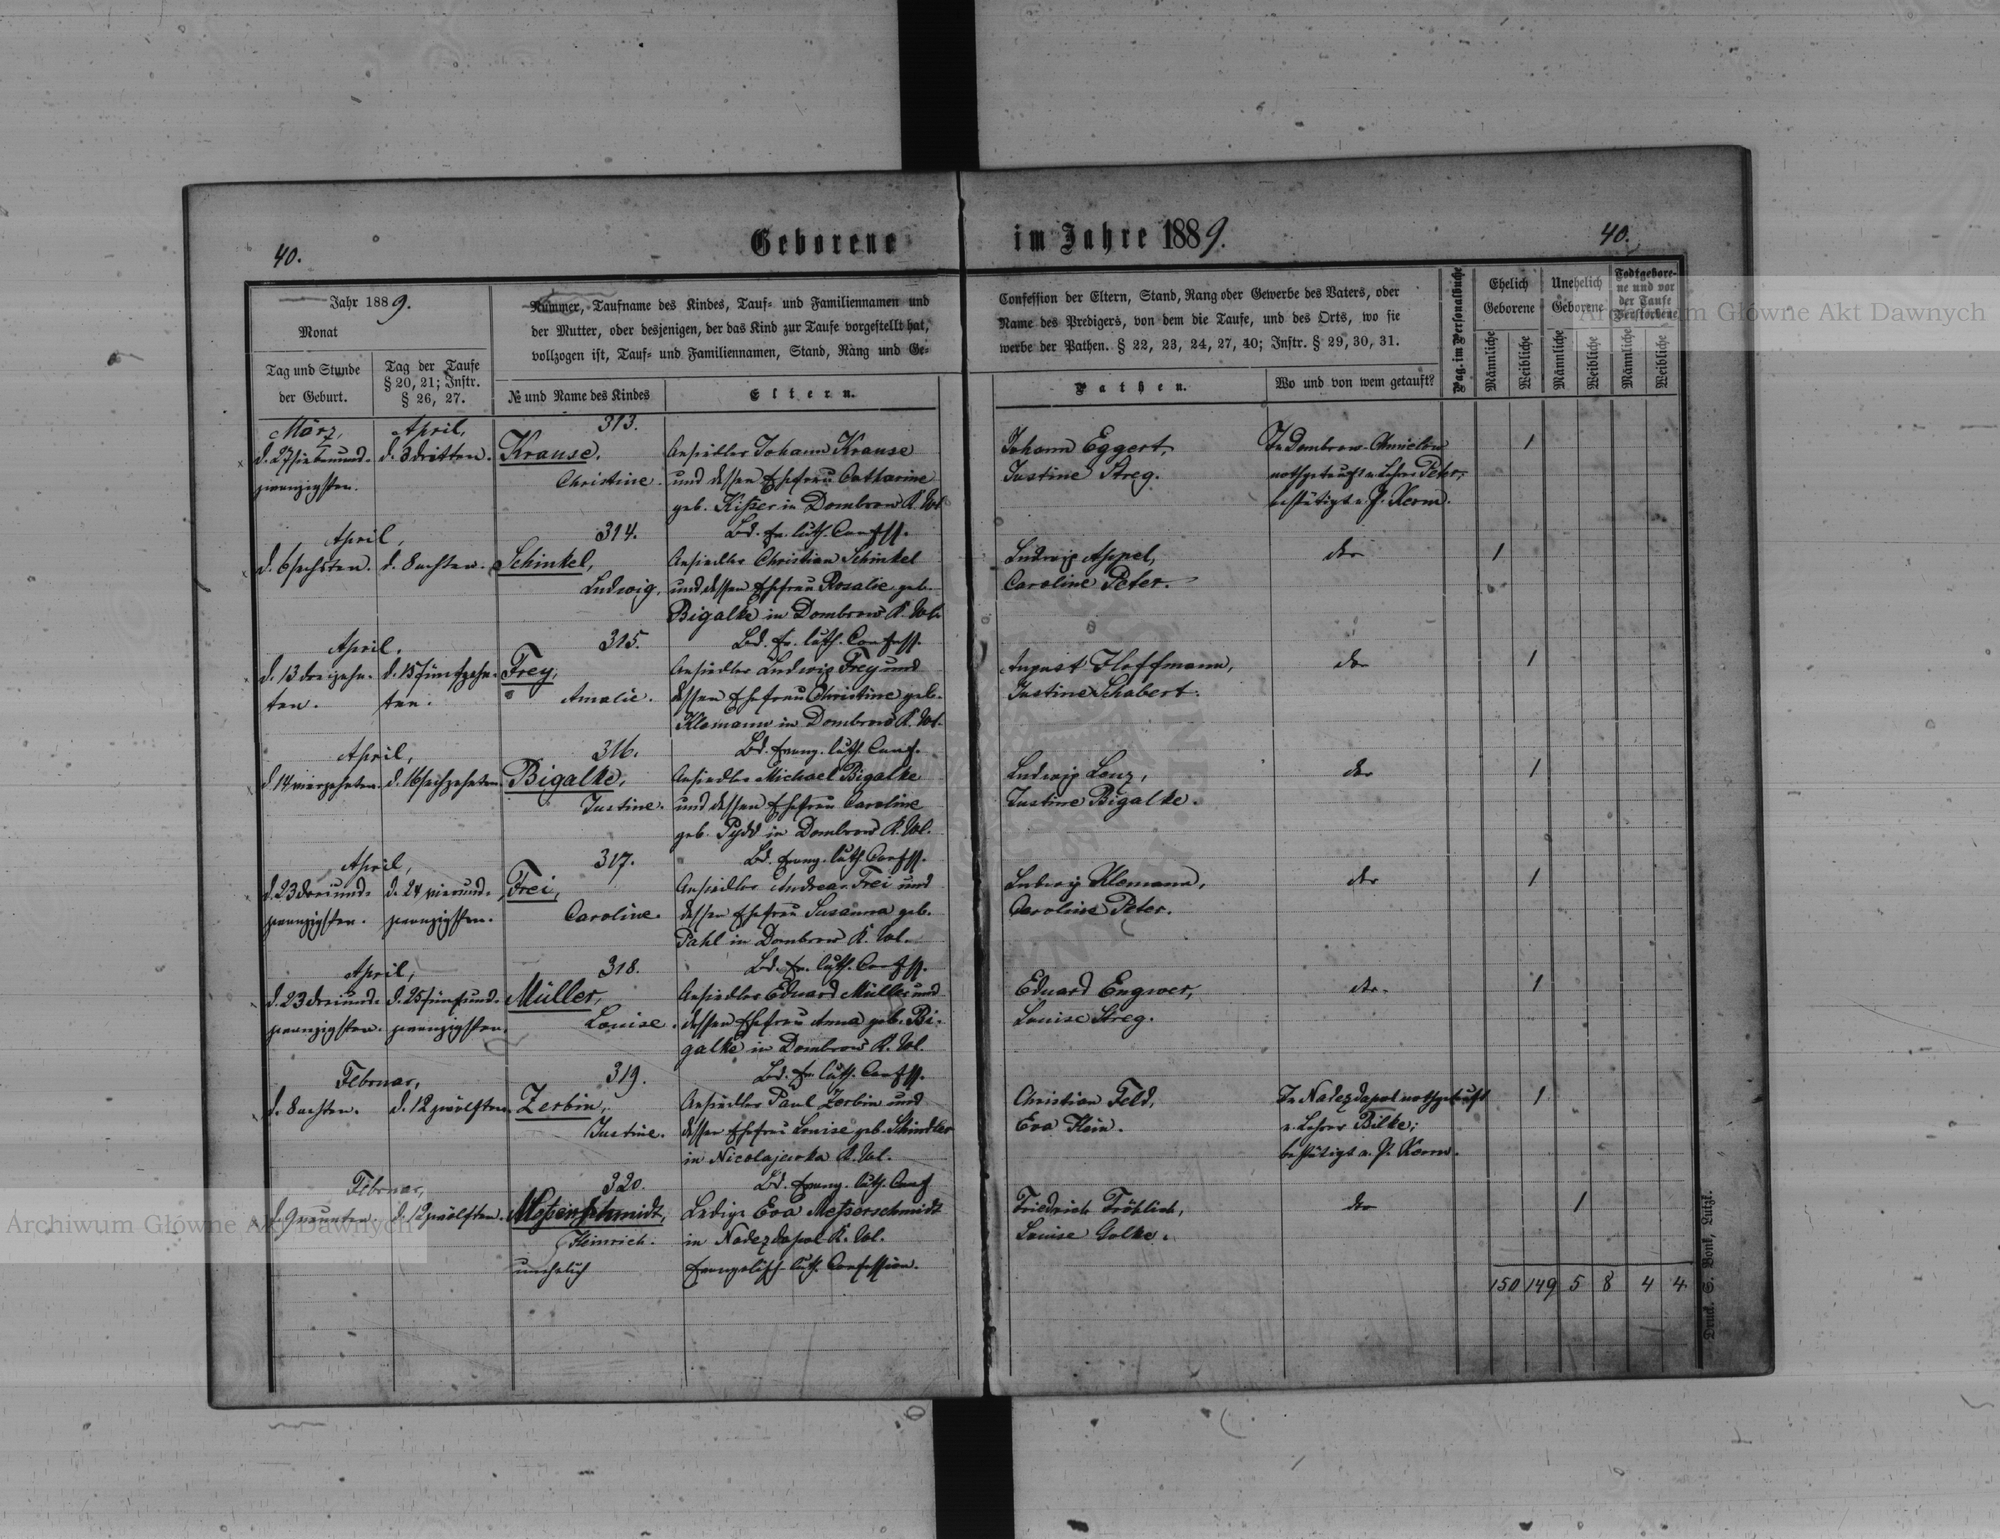 Geborene im Jahre 1889.
40.
40.
Jahr 1889.
Monat
Tag und Stunde
der Geburt.
Tag der Taufe
§ 20, 21; Instr.
§ 26, 27.
Nummer, Taufname des Kindes, Tauf- und Familiennamen und
der Mutter, oder desjenigen, der das Kind zur Taufe vorgestellt hat,
vollzogen ist, Tauf- und Familiennamen, Stand, Rang und Ge-
№ und Name des Kindes
Eltern.
Confession der Eltern, Stand, Rang oder Gewerbe des Vaters, oder
Name des Predigers, von dem die Taufe, und des Orts, wo sie
werbe der Pathen. § 22, 23, 24, 27, 40; Instr. § 29, 30, 31.
Pathen.
Wo und von wem getauft?
Pag. im Personalbuche
Ehelich
Geborene
Unehelich
Geborene
Todtgebore-
ne und vor
der Taufe
Verstorbene
Männliche
Weibliche
Männliche
Weibliche
Männliche
Weibliche
März,
d. 27 siebenund-
zwanzigsten.
April,
d. 3 dritten.
313.
Krause,
Christine.
Ansiedler Johann Krause
und dessen Ehefrau Catharine
geb. Kißer in Dombrow K. Wol.
Bd. Ev. luth. Confess.
Johann Eggert,
Justine Streg.
In Dombrow-Chmielow
nothgetauft v. Lehrer Peter;
bestätigt v. P. Kerm.
1
April,
d. 6 sechsten.
d. 8 achten.
314.
Schinkel,
Ludwig.
Ansiedler Christian Schinkel
und dessen Ehefrau Rosalie geb.
Bigalke in Dombrow K. Wol.
Bd. Ev. luth. Confess.
Ludwig Appel,
Caroline Peter.
dto
1
April,
d. 13 dreizehn-
ten.
d. 15 fünfzehn-
ten.
315.
Frey,
Amalie.
Ansiedler Ludwig Frey und
dessen Ehefrau Christine geb.
Klemann in Dombrow K. Wol.
Bd. Evang. luth. Conf.
August Hoffmann,
Justine Schabert.
dto
1
April,
d. 14 vierzehnten.
d. 16 sechzehnten.
316.
Bigalke,
Justine.
Ansiedler Michael Bigalke
und dessen Ehefrau Caroline
geb. Pydd in Dombrow K. Wol.
Bd. Evang. luth. Confess.
Ludwig Lenz,
Justine Bigalke.
dto
1
April,
d. 23 dreiund-
zwanzigsten.
d. 24 vierund-
zwanzigsten.
317.
Frei,
Caroline.
Ansiedler Andreas Frei und
dessen Ehefrau Susanna geb.
Pahl in Dombrow K. Wol.
Bd. Ev. luth. Confess.
Ludwig Klemann,
Caroline Peter.
dto
1
April,
d. 23 dreiund-
zwanzigsten.
d. 25 fünfund-
zwanzigsten.
318.
Müller,
Louise.
Ansiedler Eduard Müller und
dessen Ehefrau Anna geb. Bi-
galke in Dombrow K. Wol.
Bd. Ev. luth. Confess.
Eduard Engwer,
Louise Streg.
dto.
1
Februar,
d. 8 achten.
d. 12 zwölften.
319.
Zerbin,
Justine.
Ansiedler Paul Zerbin und
dessen Ehefrau Louise geb. Schindler
in Nicolajewka K. Wol.
Bd. Evang. luth. Conf.
Christian Feld,
Eva Klein.
In Nadezdapol nothgetauft
v. Lehrer Bilke;
bestätigt v. P. Kerm.
1
Februar,
d. 9 neunten
d. 12 zwölften.
320.
Meßerschmidt,
Heinrich.
unehelich
Ledige Eva Meßerschmidt
in Nadezdapol K. Wol.
Evangelisch luth. Confession.
Friedrich Fröhlich,
Louise Golke.
dto
1
150 149 5 8 4 4
Druck. S. Bonk, Lutzk.
Archiwum Główne Akt Dawnych
Archiwum Główne Akt Dawnych